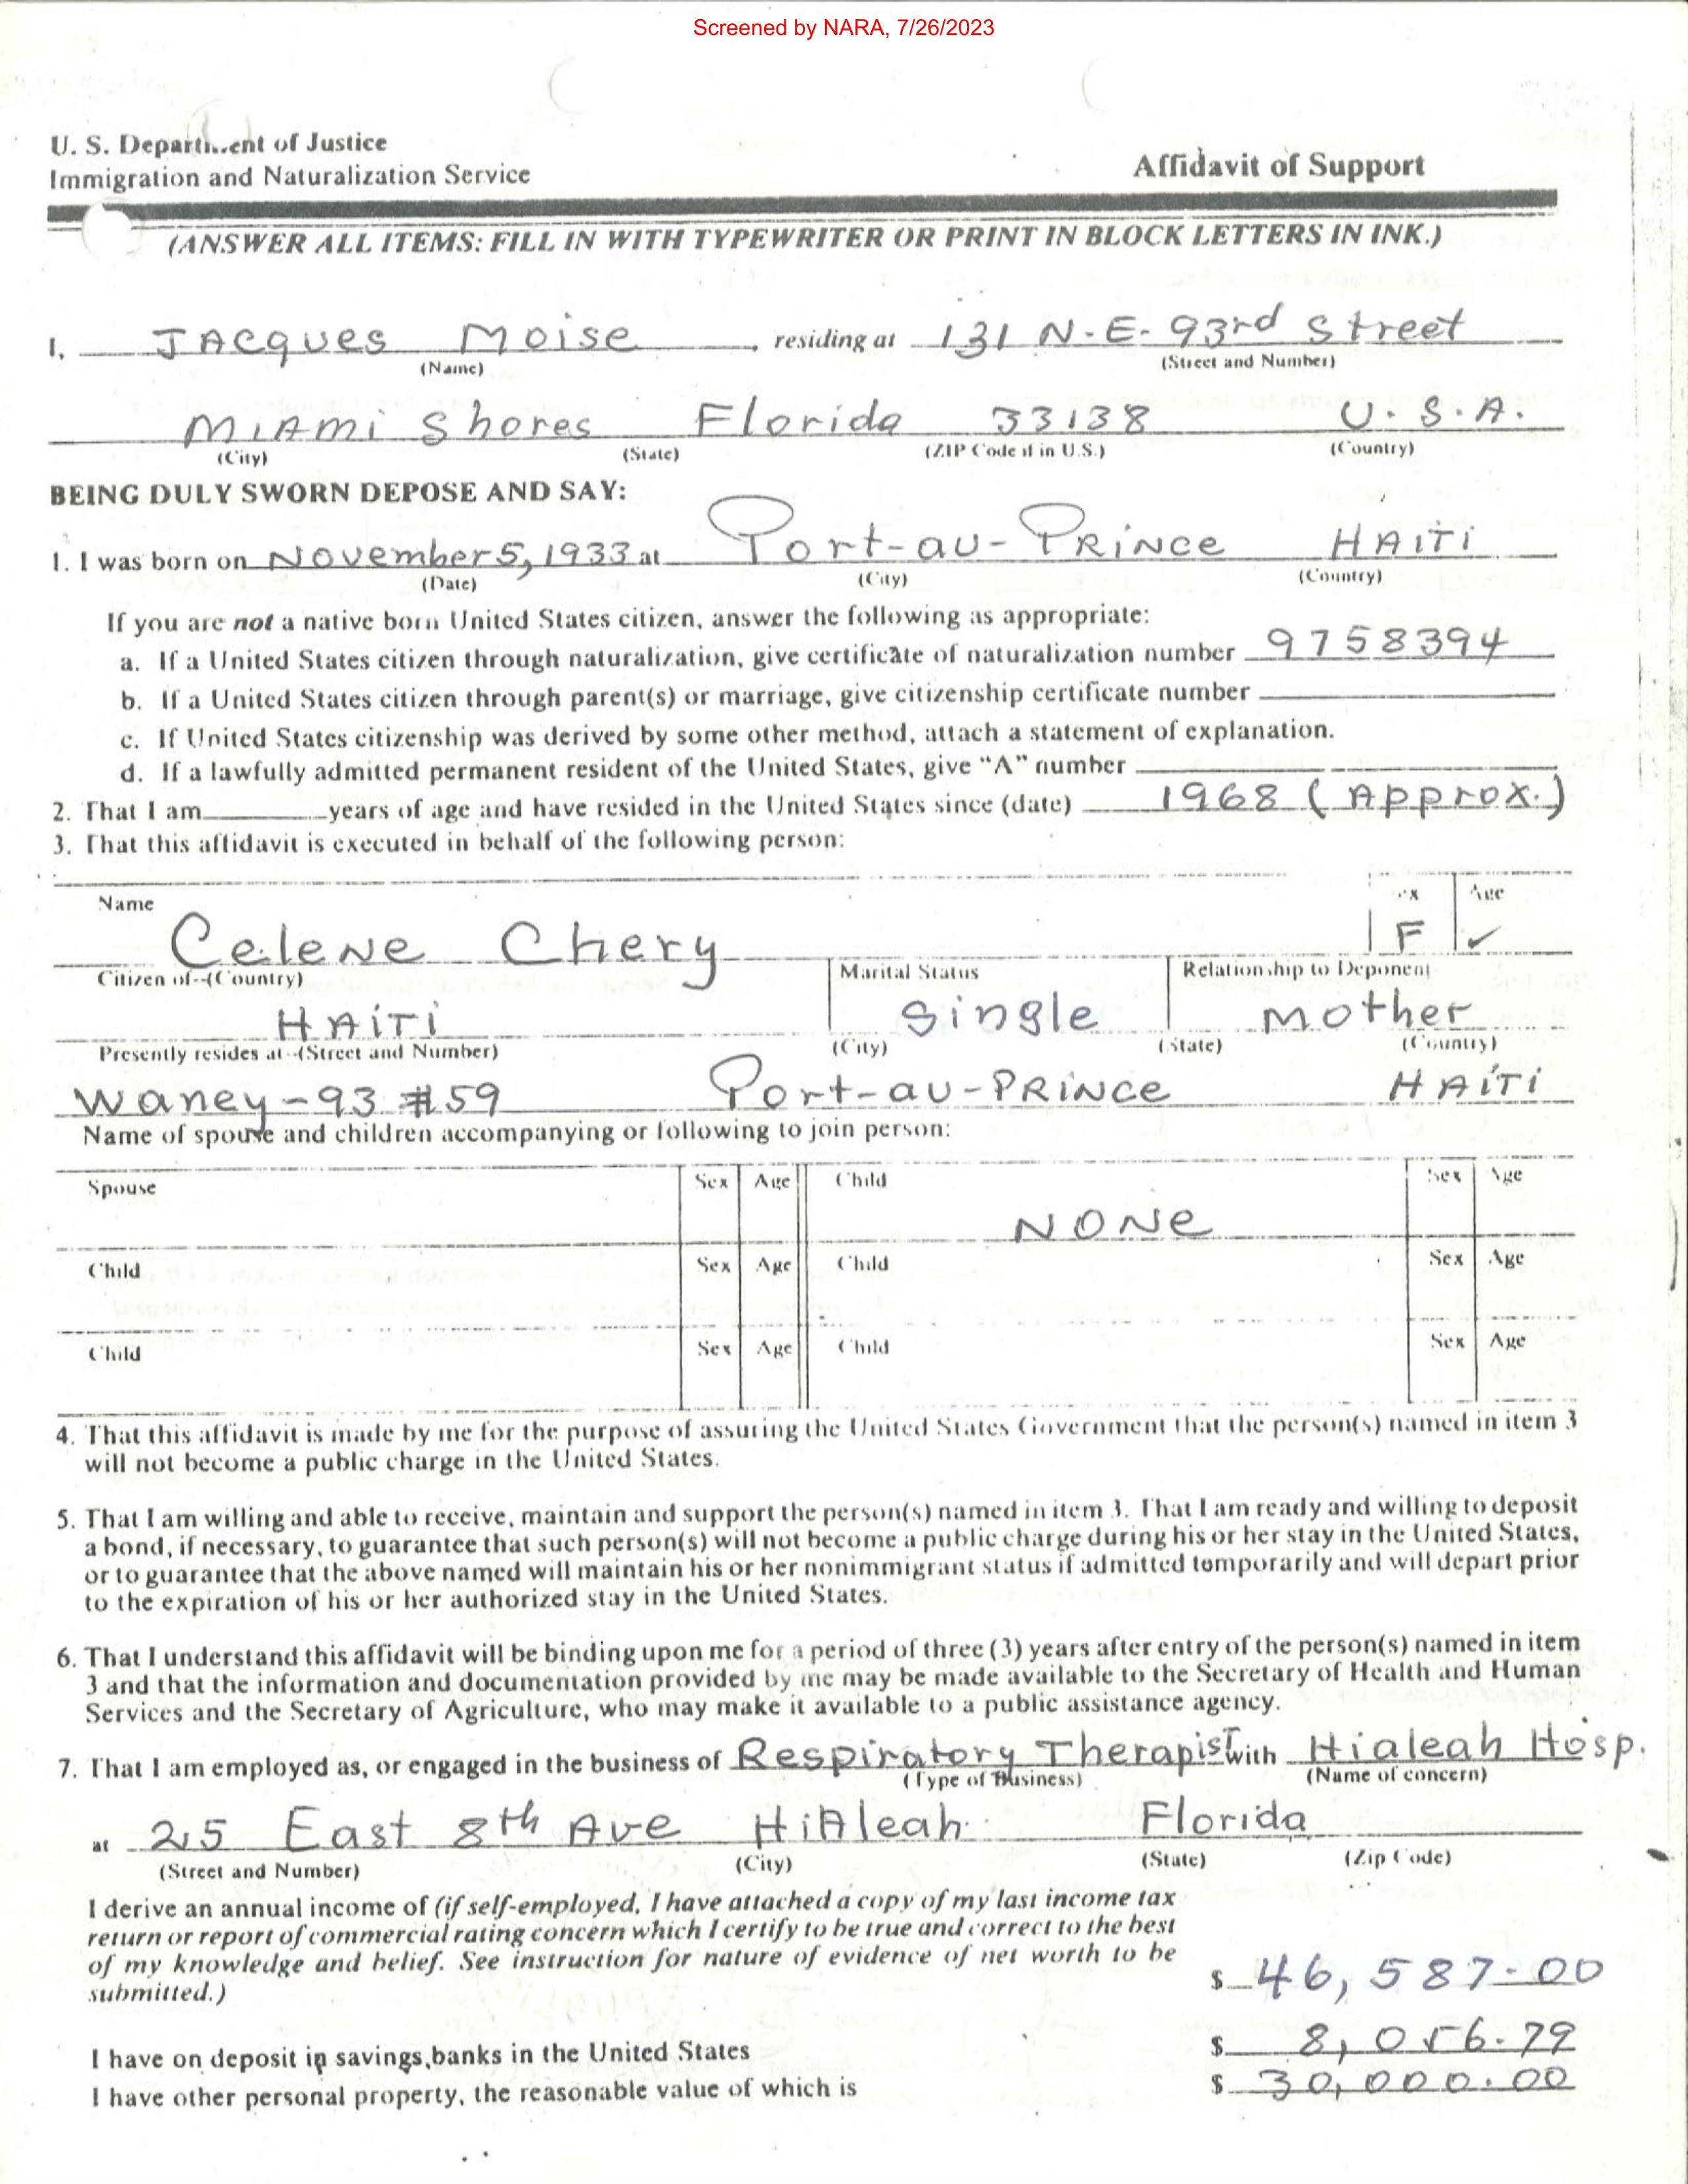 Screened by NARA, 7/26/2023
U. S. Department of Justice
Immigration and Naturalization Service
Affidavit of Support
(ANSWER ALL ITEMS: FILL IN WITH TYPEWRITER OR PRINT IN BLOCK LETTERS IN INK.)
I, JAcques Moise, residing at 131 N-E- 93rd Street
(Name) (Street and Number)
MiAmi Shores Florida 33138 U.S.A.
(City) (State) (ZIP Code if in U.S.) (Country)
BEING DULY SWORN DEPOSE AND SAY:
1. I was born on November 5, 1933 at Port-au-PRiNce HAiTi
(Date) (City) (Country)
If you are not a native born United States citizen, answer the following as appropriate:
a. If a United States citizen through naturalization, give certificate of naturalization number 9758394
b. If a United States citizen through parent(s) or marriage, give citizenship certificate number
c. If United States citizenship was derived by some other method, attach a statement of explanation.
d. If a lawfully admitted permanent resident of the United States, give "A" number
2. That I am years of age and have resided in the United States since (date) 1968 (Approx.)
3. That this affidavit is executed in behalf of the following person:
Name Sex Age
CeleNe Chery F ✓
Citizen of--(Country) Marital Status Relationship to Deponent
HAiTi Single Mother
Presently resides at--(Street and Number) (City) (State) (Country)
Waney-93 #59 Port-au-PRiNce HAiTi
Name of spouse and children accompanying or following to join person:
Spouse Sex Age Child Sex Age
NONe
Child Sex Age Child Sex Age
Child Sex Age Child Sex Age
4. That this affidavit is made by me for the purpose of assuring the United States Government that the person(s) named in item 3
will not become a public charge in the United States.
5. That I am willing and able to receive, maintain and support the person(s) named in item 3. That I am ready and willing to deposit
a bond, if necessary, to guarantee that such person(s) will not become a public charge during his or her stay in the United States,
or to guarantee that the above named will maintain his or her nonimmigrant status if admitted temporarily and will depart prior
to the expiration of his or her authorized stay in the United States.
6. That I understand this affidavit will be binding upon me for a period of three (3) years after entry of the person(s) named in item
3 and that the information and documentation provided by me may be made available to the Secretary of Health and Human
Services and the Secretary of Agriculture, who may make it available to a public assistance agency.
7. That I am employed as, or engaged in the business of Respiratory Therapist with Hialeah Hosp.
(Type of Business) (Name of concern)
at 25 East 8th Ave HiAleah Florida
(Street and Number) (City) (State) (Zip Code)
I derive an annual income of (if self-employed, I have attached a copy of my last income tax
return or report of commercial rating concern which I certify to be true and correct to the best
of my knowledge and belief. See instruction for nature of evidence of net worth to be
submitted.) $ 46,587.00
I have on deposit in savings banks in the United States $ 8,056.79
I have other personal property, the reasonable value of which is $ 30,000.00